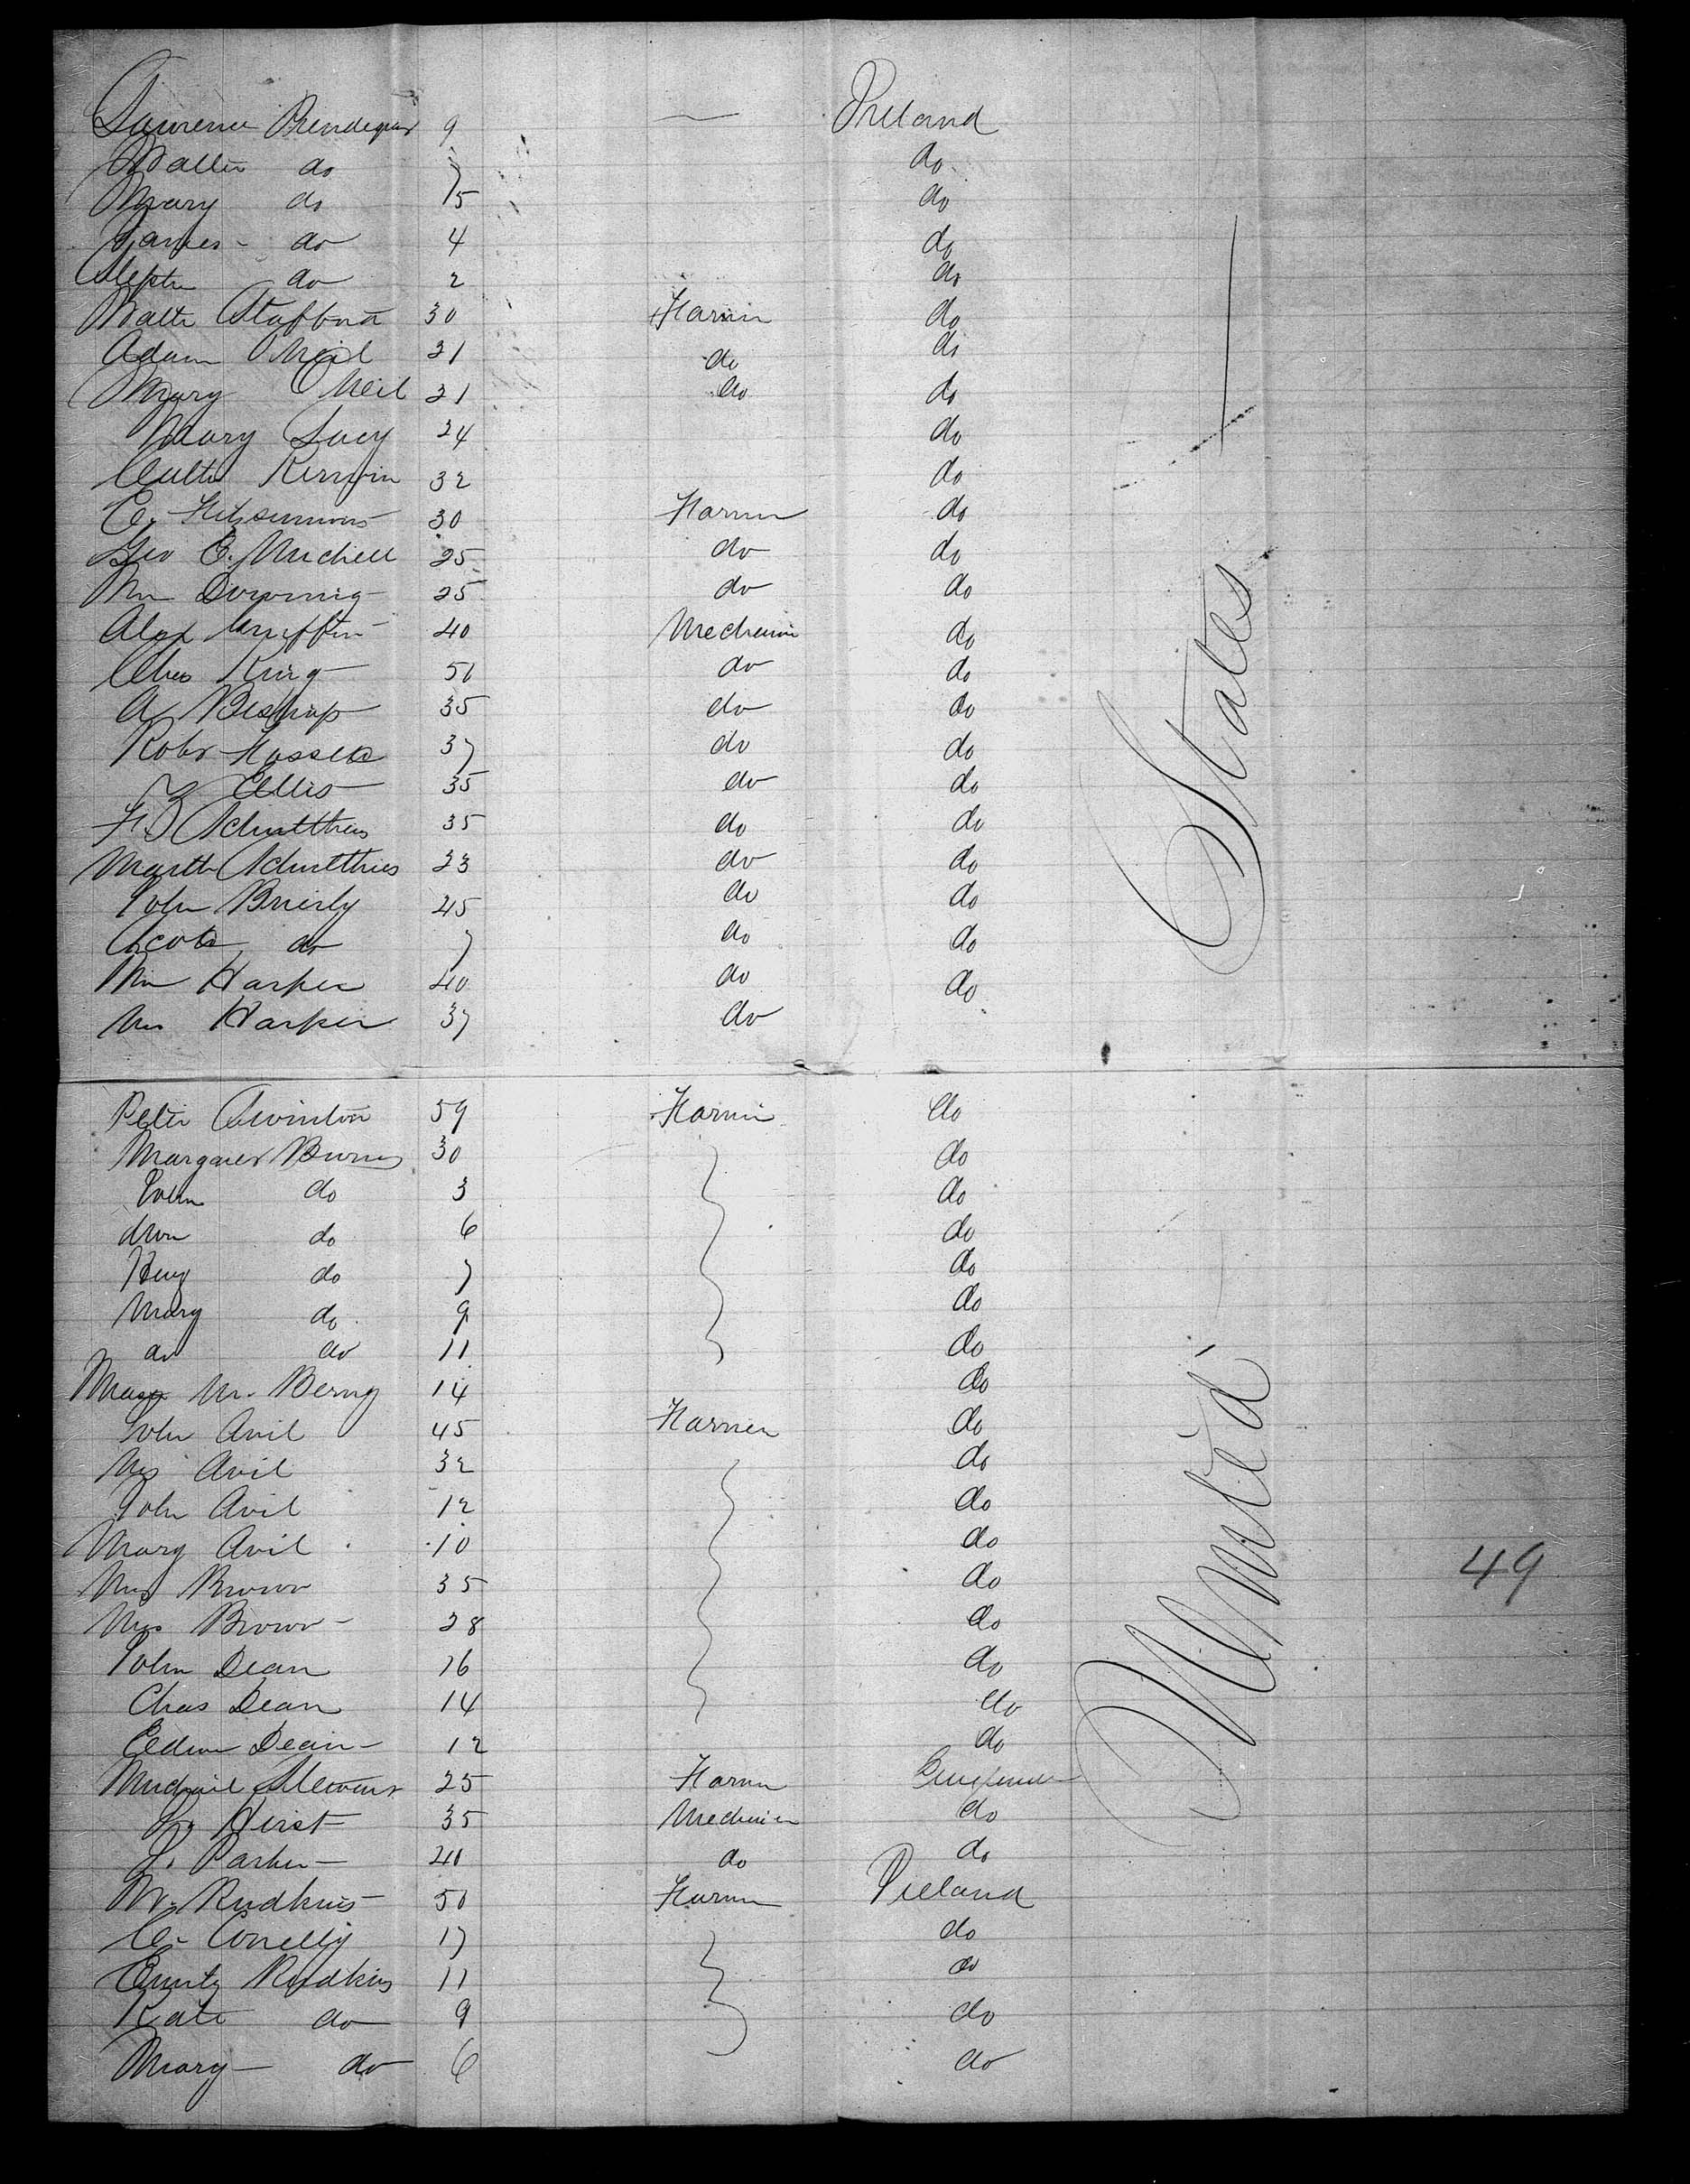 Lawrence Prendergast 9 — Ireland
Walter do 7 do
Mary do 5 do
James - do 4 do
Stephen do 2 do
Walter Stafford 30 Farmer do
Adam O Neil 31 do do
Mary O Neil 31 do do
Mary Lacy 34 do
Kerwin 32 do
C. Fitzsimmons 30 Farmer do
Geo E. Mitchell 25 do do
Wm Downing 25 do do
Alex Griffin 40 Mechanic do
Chas King 51 do do
A Bishop 35 do do
Robt 37 do do
Ellis 35 do do
F. 35 do do
Martha 33 do do
John Brierly 45 do do
do 7 do do
Wm Harper 40 do do
Mrs Harper 37 do
Peter Swinton 59 Farmer do
Margaret Burns 30 do
John do 3 do
Ann do 6 do
Henry do 7 do
Mary do 9 do
do do 11 do
Mary M. 14 do
John Avil 45 Farmer do
Mrs Avil 32 do
John Avil 12 do
Mary Avil 10 do
Mrs Brown 35 do
Mrs Brown 28 do
John Dean 16 do
Chas Dean 14 do
Edwin Dean 12 do
Michael 25 Farmer
Hirst 35 Mechanic do
Parker 40 do do
W. Rudkins 50 Farmer Ireland
C. Conelly 17 do
Emily Rudkins 11 do
Kate do 9 do
Mary do 6 do
United States
49